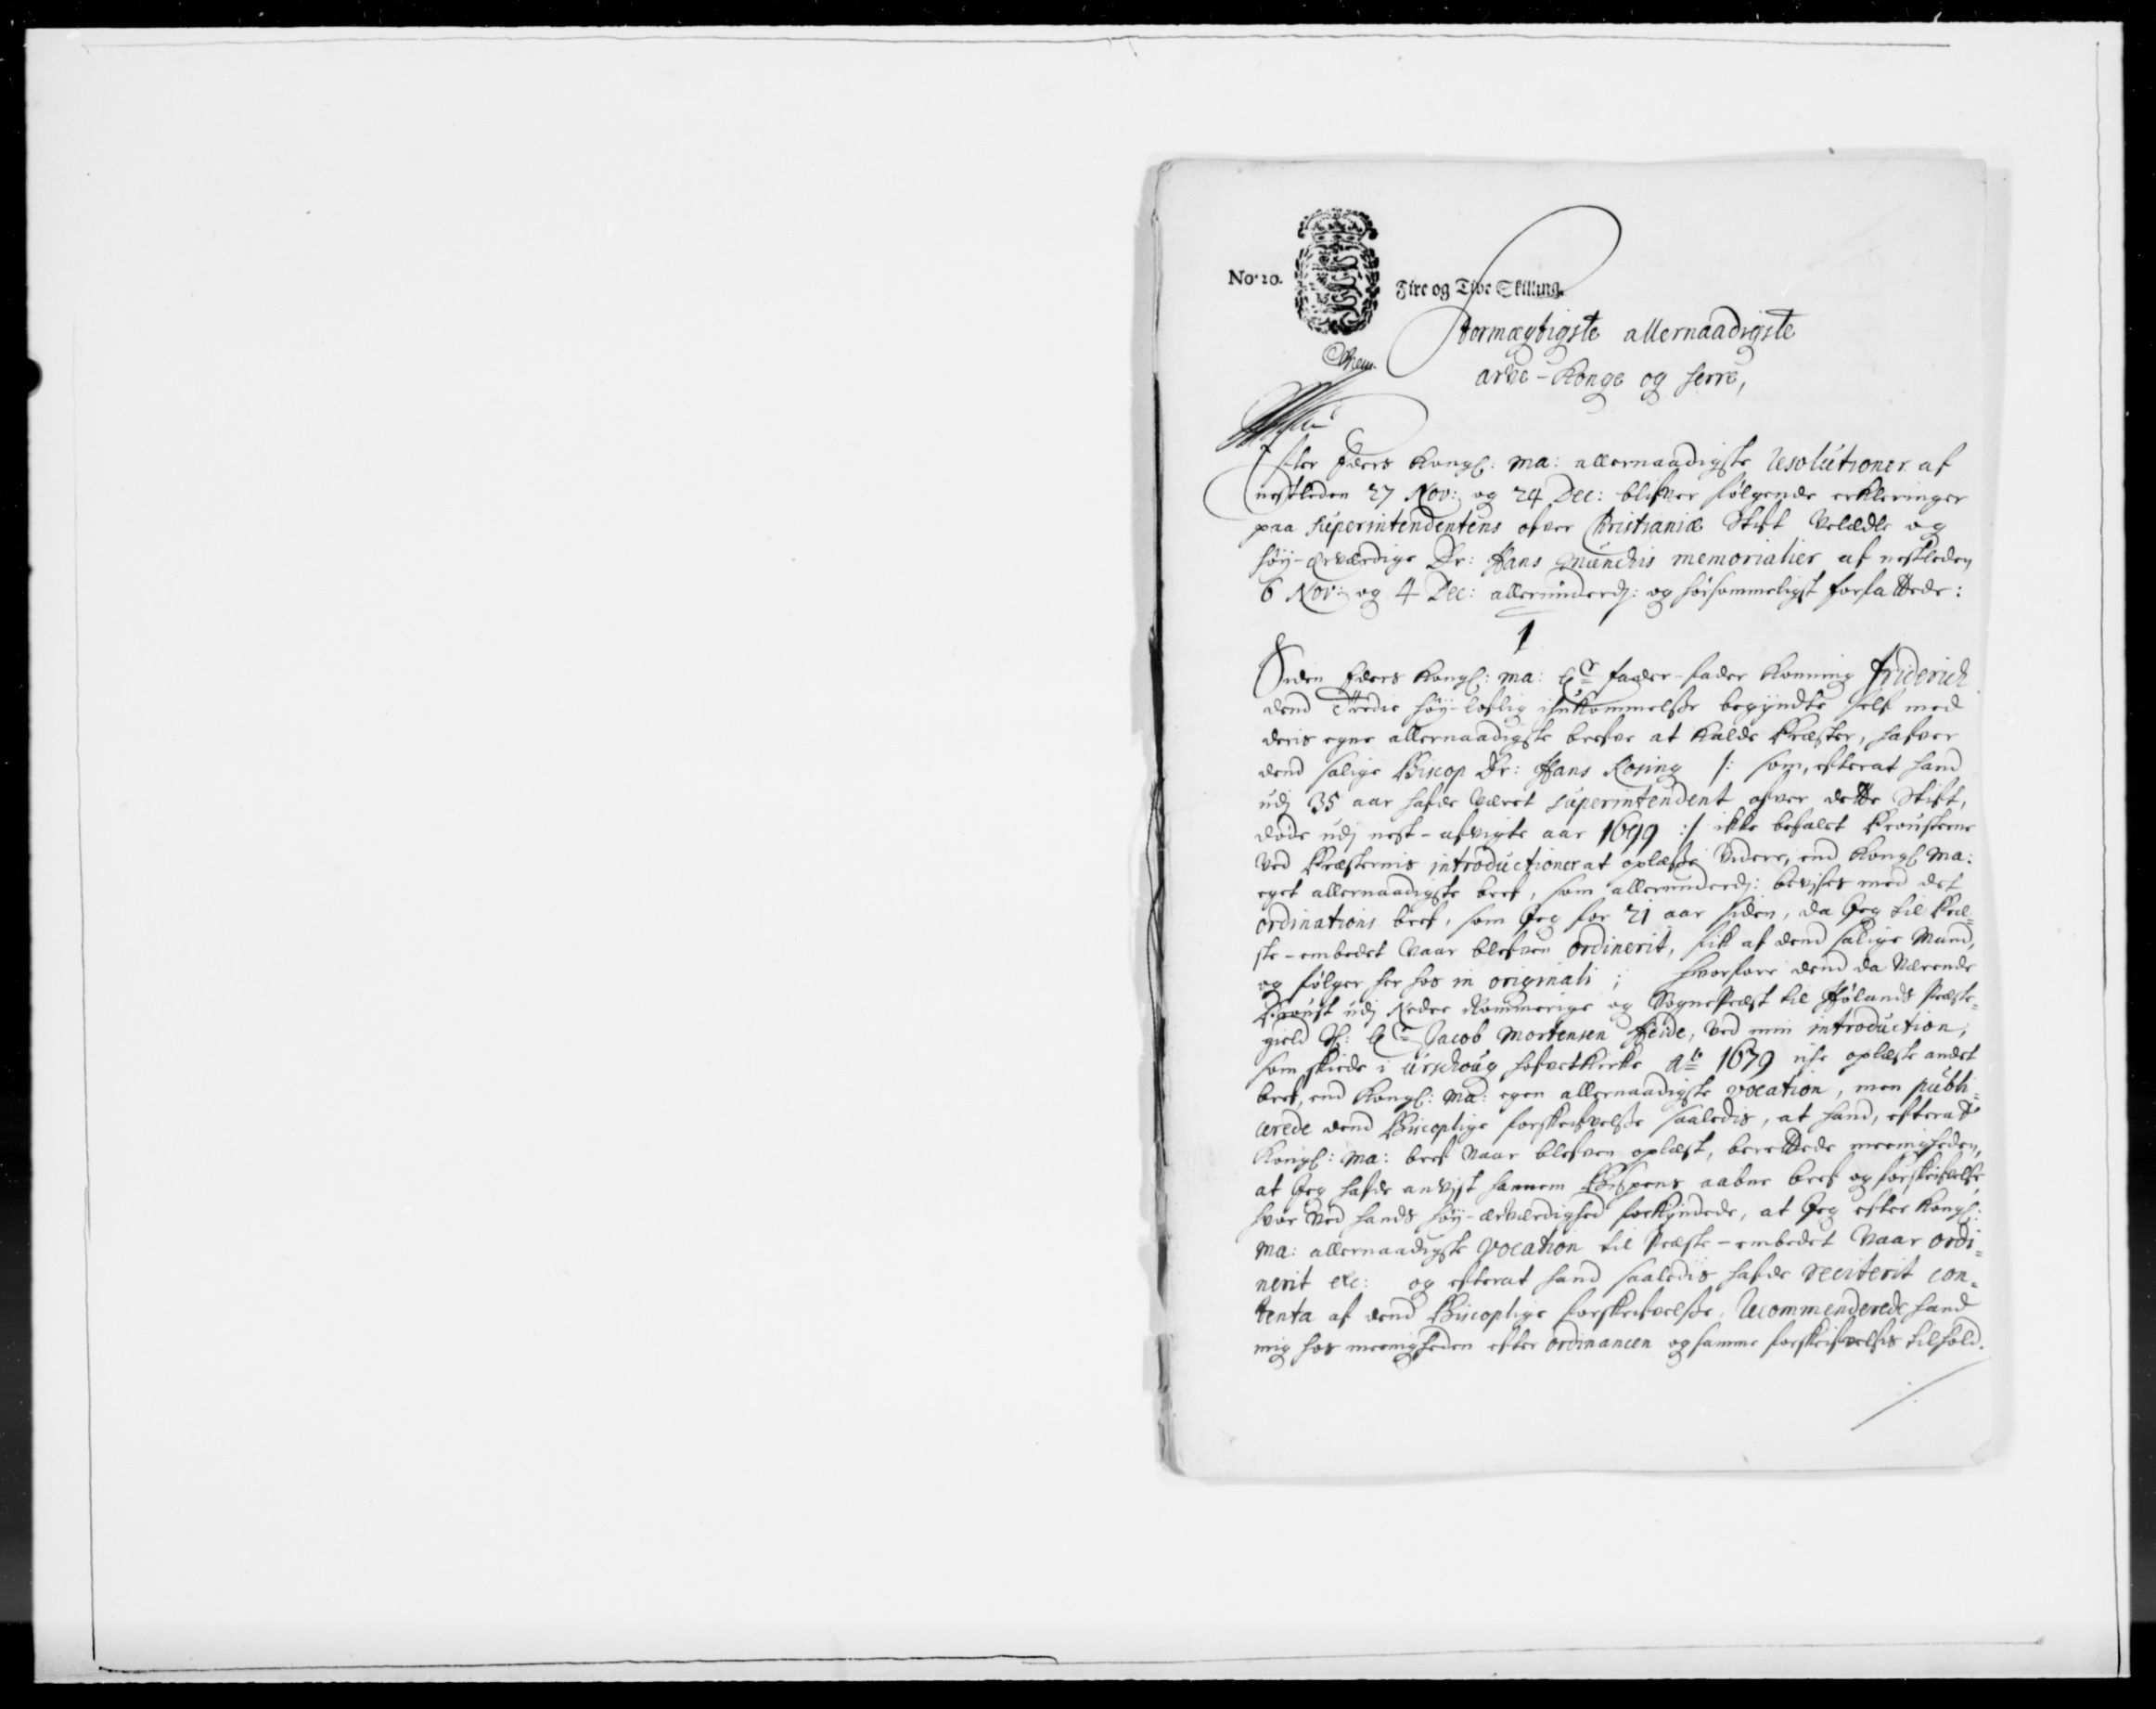 No. 20.
Fire og Tive Skilling.
Stormægtigste allernaadigste
arve-Konge og herre,
Efter Eders Kongl: Ma: allernaadigste Resolutioner af
nestleden 27 Nov: og 24 Dec: blifver følgende erkleringer
paa Superintendentens ofver Christianiæ Stift Velædle og
høy-ærværdige Dr: Hans Munchis memorialier af nestleden
6 Nov: og 4 Dec: allerunderd: og hørsommeligst forfattede:
1
Siden Eders Kongl: Ma: Sr fader-fader Konning Friderich
dend Tredie høy-loflig ihukommelse begyndte self med
deris egne allernaadigste brefve at kalde Præster, hafver
dend salige Biscop Dr: Hans Rosing /: som, efterat hand
udj 35 aar hafde været Superintendent ofver dette Stift,
døde udj nest-afvigte aar 1699 :/ ikke befalet Prousterne
ved Præsternis introductioner at oplæse videre, end Kongl Ma:
eget allernaadigste bref, som allerunderd: bevises med det
ordinations bref, som Jeg for 21 aar siden, da Jeg til Præ=
ste-embedet vaar blefven ordinerit, fik af dend salige Mand,
og følger her hos in originali; hvorfore dend da værende
Proust udj Nedre Rommerige og SognePræst til Hølands Præste=
gield Hr: Sr Jacob Mortensen Heide, ved min introduction,
som skiede i Urschoug hofvetKirke Ao 1679 iche oplæste andet
bref, end Kongl: Ma: egen allernaadigste vocation, men publi=
cerede dend Biscoplige forskrifvelse saaledis, at hand, efterat
Kongl: Ma: bref vaar blefven oplæst, berettede meenigheden,
at Jeg hafde anvist hannem Bispens aabne bref og forskrifvelse,
hvor ved hands høy-ærværdighed forkyndede, at Jeg efter Kongl:
Ma: allernaadigste vocation til Præste-embedet vaar ordi=
nerit etc: og efterat hand saaledis hafde reciterit con=
tenta af dend Biscoplige forskrifvelse, Recommenderede hand
mig hos meenigheden efter ordinancen og samme forskrifvelsis tilhold.